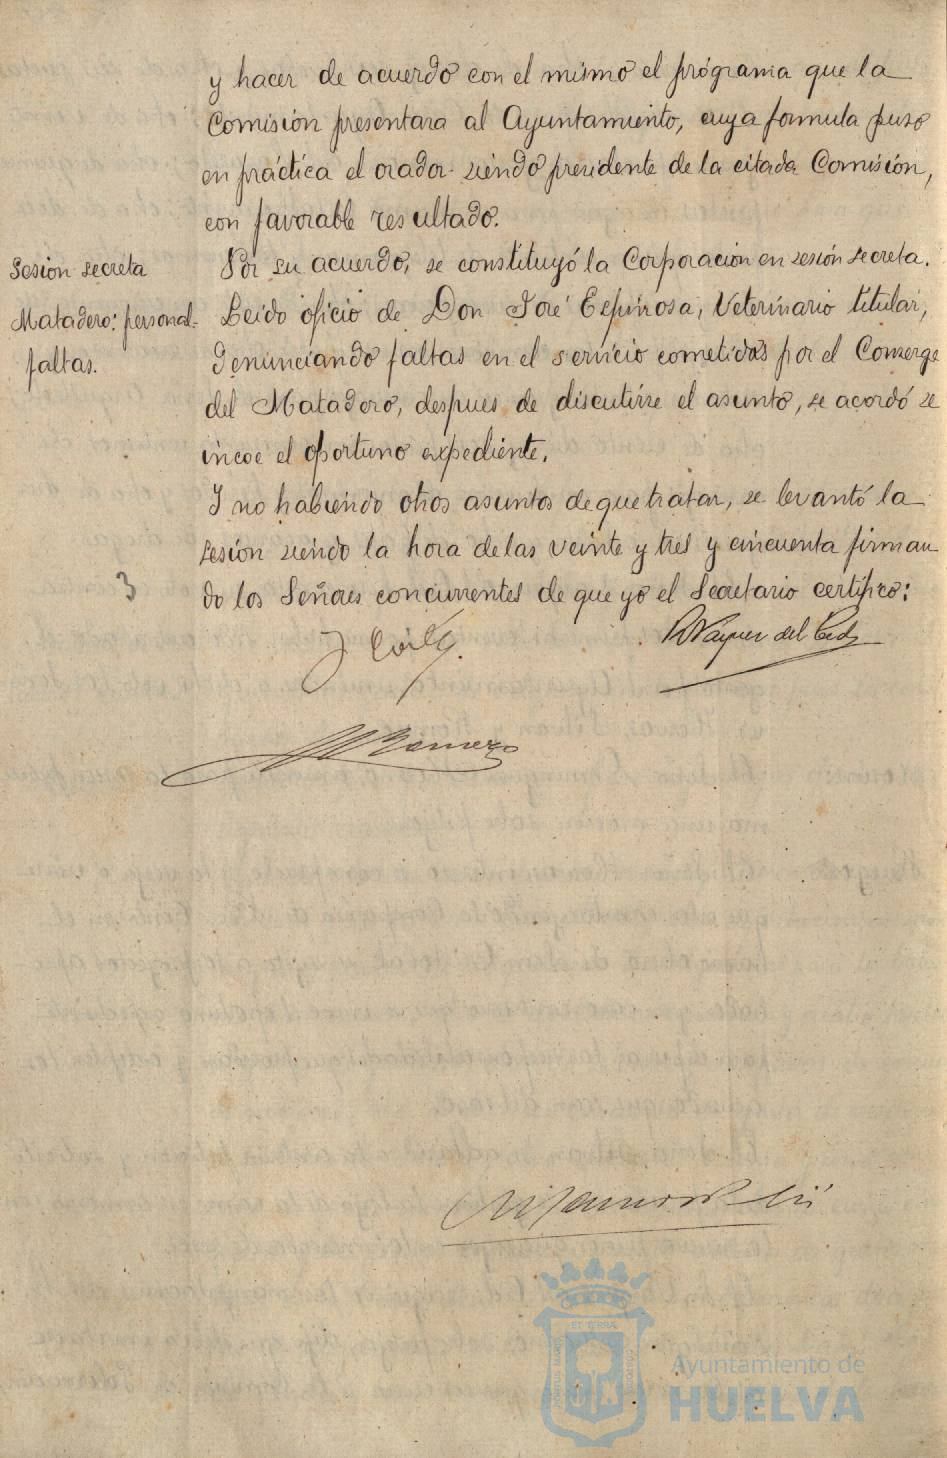 y hacer de acuerdo con el mismo el prógrama que la
Comision presentara al Ayuntamiento, cuya formula puso
en práctica el orador siendo presidente de la citada Comisión,
con favorable resultado.
Sesion secreta
Por su acuerdo, se constituyó la Corporacion en sesión secreta.
Matadero: personal-
faltas.
Leido oficio de Don José Espinosa, Veterinario titular,
denunciando faltas en el servicio cometidas por el Conserge
del Matadero, despues de discutirse el asunto, se acordó se
incoe el oportuno expediente.
Y no habiendo otros asuntos de que tratar, se levantó la
sesión siendo la hora de las veinte y tres y cincuenta firman
do los Señores concurrentes de que yo el Secretario certifico:
3
del Cid
Romero
ET TERRA
Ayuntamiento de
HUELVA